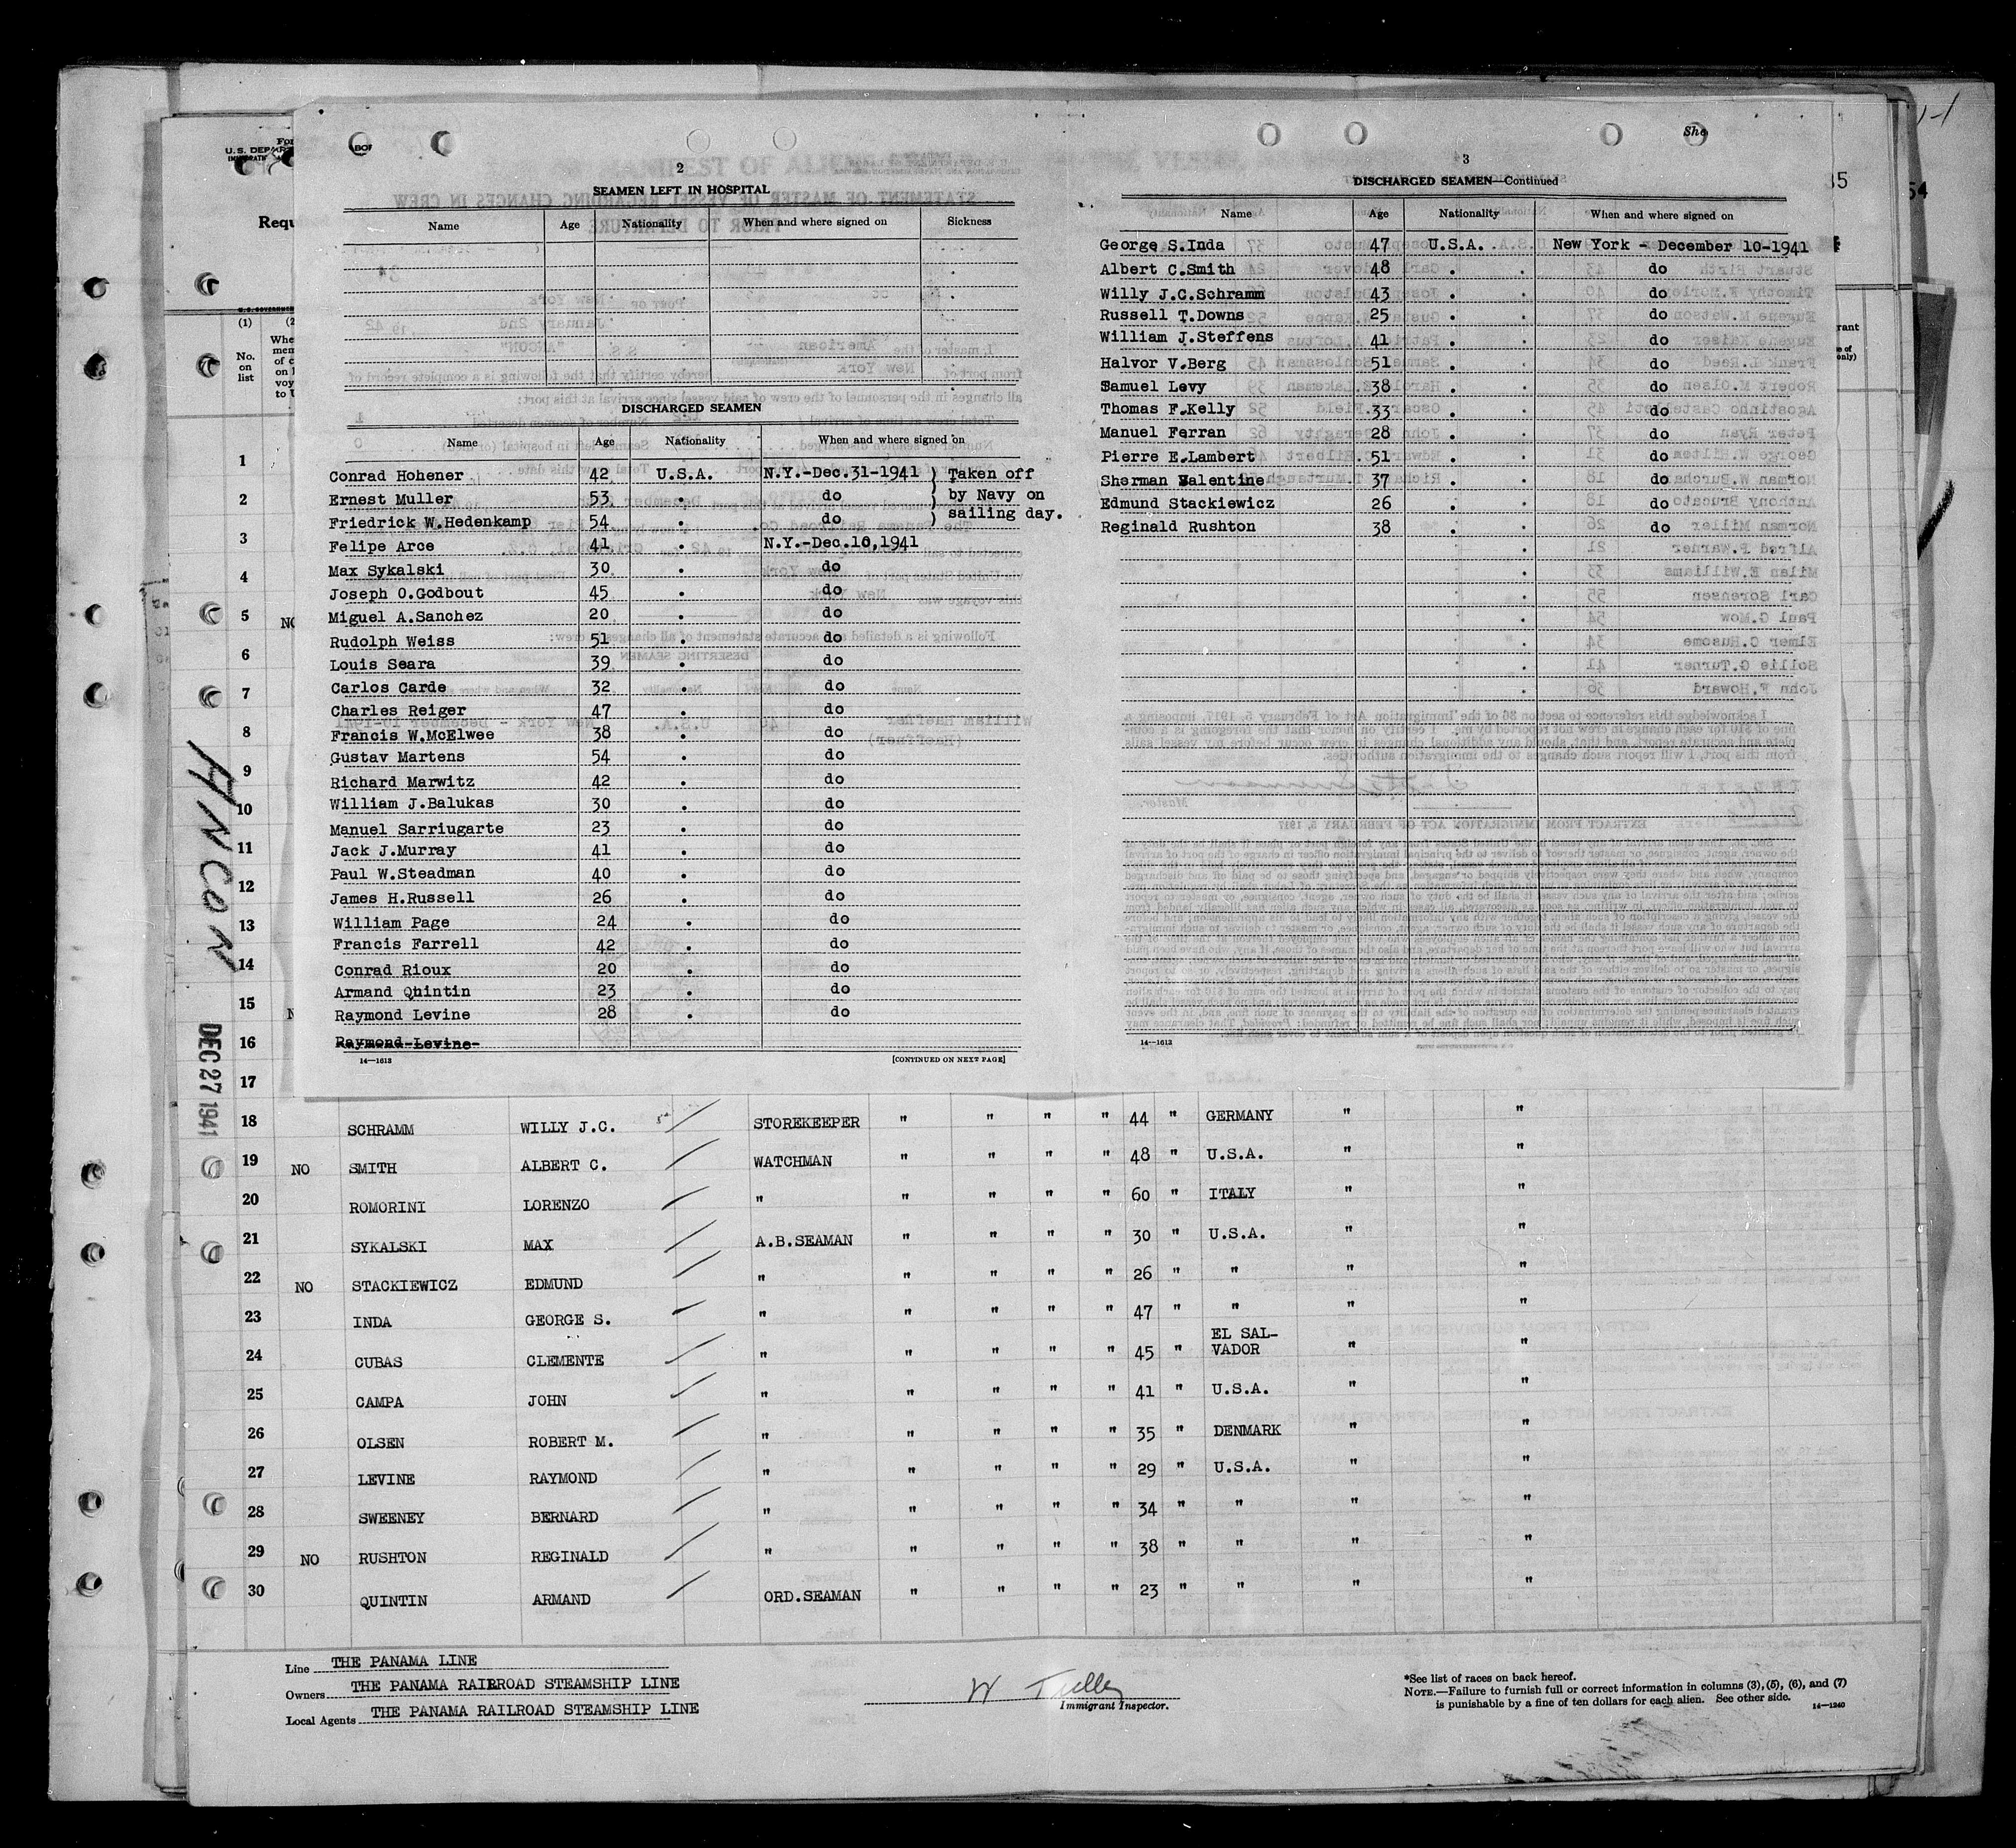 2
SEAMEN LEFT IN HOSPITAL
Name Age Nationality When and where signed on Sickness
DISCHARGED SEAMEN
Name Age Nationality When and where signed on
Conrad Hohener 42 U.S.A. N.Y.-Dec.31-1941 } Taken off
Ernest Muller 53 " do } by Navy on
Friedrick W.Hedenkamp 54 " do } sailing day.
Felipe Arce 41 " N.Y.-Dec.10,1941
Max Sykalski 30 " do
Joseph O.Godbout 45 " do
Miguel A.Sanchez 20 " do
Rudolph Weiss 51 " do
Louis Seara 39 " do
Carlos Carde 32 " do
Charles Reiger 47 " do
Francis W.McElwee 38 " do
Gustav Martens 54 " do
Richard Marwitz 42 " do
William J.Balukas 30 " do
Manuel Sarriugarte 23 " do
Jack J.Murray 41 " do
Paul W.Steadman 40 " do
James H.Russell 26 " do
William Page 24 " do
Francis Farrell 42 " do
Conrad Rioux 20 " do
Armand Quintin 23 " do
Raymond Levine 28 " do
Raymond Levine
14—1613 [CONTINUED ON NEXT PAGE]
3
DISCHARGED SEAMEN—Continued
Name Age Nationality When and where signed on
George S.Inda 47 U.S.A. New York - December 10-1941
Albert C.Smith 48 " " do
Willy J.C.Schramm 43 " " do
Russell T.Downs 25 " " do
William J.Steffens 41 " " do
Halvor V.Berg 51 " " do
Samuel Levy 38 " " do
Thomas F.Kelly 33 " " do
Manuel Ferran 28 " " do
Pierre E.Lambert 51 " " do
Sherman Valentine 37 " " do
Edmund Stackiewicz 26 " " do
Reginald Rushton 38 " " do
14—1613
She
35
54
U.S. DEPAR
Requ
(1)
No.
on
list
ANCON
DEC 27 1941
1
2
3
4
5
6
7
8
9
10
11
12
13
14
15
16
17
18 SCHRAMM WILLY J.C. STOREKEEPER " " " " 44 " GERMANY " "
19 NO SMITH ALBERT C. WATCHMAN " " " " 48 " U.S.A. " "
20 ROMORINI LORENZO " " " " " 60 " ITALY " "
21 SYKALSKI MAX A.B.SEAMAN " " " " 30 " U.S.A. " "
22 NO STACKIEWICZ EDMUND " " " " " 26 " " " "
23 INDA GEORGE S. " " " " " 47 " " " "
24 CUBAS CLEMENTE " " " " " 45 " EL SAL-VADOR " "
25 CAMPA JOHN " " " " " 41 " U.S.A. " "
26 OLSEN ROBERT M. " " " " " 35 " DENMARK " "
27 LEVINE RAYMOND " " " " " 29 " U.S.A. " "
28 SWEENEY BERNARD " " " " " 34 " " " "
29 NO RUSHTON REGINALD " " " " " 38 " " " "
30 QUINTIN ARMAND ORD.SEAMAN " " " " 23 " " " "
Line THE PANAMA LINE
Owners THE PANAMA RAILROAD STEAMSHIP LINE
Local Agents THE PANAMA RAILROAD STEAMSHIP LINE
Immigrant Inspector.
*See list of races on back hereof.
NOTE.—Failure to furnish full or correct information in columns (3), (5), (6), and (7)
is punishable by a fine of ten dollars for each alien. See other side. 14—1240